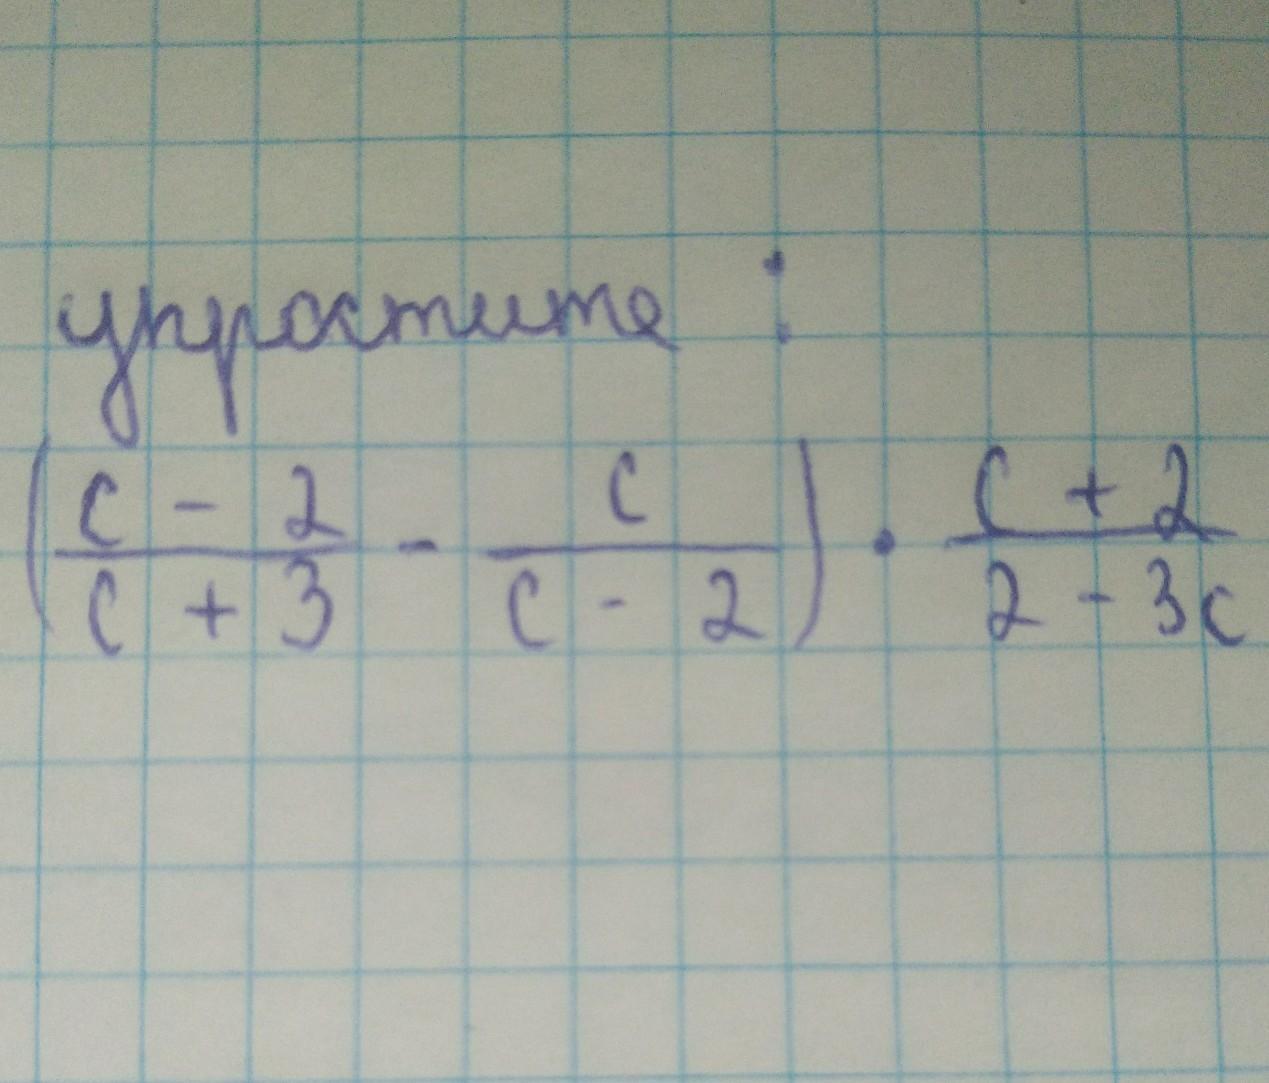 упростите :
(c - 2 / c + 3 - c / c - 2) · c + 2 / 2 - 3c